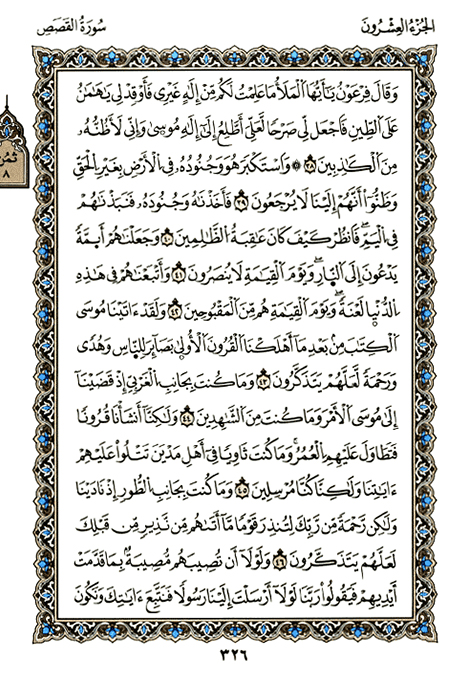 الجزء العشرون
سورة القصص
وَقَالَ فِرْعَوْنُ يَٰٓأَيُّهَا ٱلْمَلَأُ مَا عَلِمْتُ لَكُم مِّنْ إِلَٰهٍ غَيْرِى فَأَوْقِدْ لِى يَٰهَٰمَٰنُ
عَلَى ٱلطِّينِ فَٱجْعَل لِّى صَرْحًا لَّعَلِّىٓ أَطَّلِعُ إِلَىٰٓ إِلَٰهِ مُوسَىٰ وَإِنِّى لَأَظُنُّهُۥ
مِنَ ٱلْكَٰذِبِينَ ٣٨ وَٱسْتَكْبَرَ هُوَ وَجُنُودُهُۥ فِى ٱلْأَرْضِ بِغَيْرِ ٱلْحَقِّ
وَظَنُّوٓا۟ أَنَّهُمْ إِلَيْنَا لَا يُرْجَعُونَ ٣٩ فَأَخَذْنَٰهُ وَجُنُودَهُۥ فَنَبَذْنَٰهُمْ
فِى ٱلْيَمِّ ۖ فَٱنظُرْ كَيْفَ كَانَ عَٰقِبَةُ ٱلظَّٰلِمِينَ ٤٠ وَجَعَلْنَٰهُمْ أَئِمَّةً
يَدْعُونَ إِلَى ٱلنَّارِ ۖ وَيَوْمَ ٱلْقِيَٰمَةِ لَا يُنصَرُونَ ٤١ وَأَتْبَعْنَٰهُمْ فِى هَٰذِهِ
ٱلدُّنْيَا لَعْنَةً ۖ وَيَوْمَ ٱلْقِيَٰمَةِ هُم مِّنَ ٱلْمَقْبُوحِينَ ٤٢ وَلَقَدْ ءَاتَيْنَا مُوسَى
ٱلْكِتَٰبَ مِنۢ بَعْدِ مَآ أَهْلَكْنَا ٱلْقُرُونَ ٱلْأُولَىٰ بَصَآئِرَ لِلنَّاسِ وَهُدًى
وَرَحْمَةً لَّعَلَّهُمْ يَتَذَكَّرُونَ ٤٣ وَمَا كُنتَ بِجَانِبِ ٱلْغَرْبِىِّ إِذْ قَضَيْنَآ
إِلَىٰ مُوسَى ٱلْأَمْرَ وَمَا كُنتَ مِنَ ٱلشَّٰهِدِينَ ٤٤ وَلَٰكِنَّآ أَنشَأْنَا قُرُونًا
فَتَطَاوَلَ عَلَيْهِمُ ٱلْعُمُرُ ۚ وَمَا كُنتَ ثَاوِيًا فِىٓ أَهْلِ مَدْيَنَ تَتْلُوا۟ عَلَيْهِمْ
ءَايَٰتِنَا وَلَٰكِنَّا كُنَّا مُرْسِلِينَ ٤٥ وَمَا كُنتَ بِجَانِبِ ٱلطُّورِ إِذْ نَادَيْنَا
وَلَٰكِن رَّحْمَةً مِّن رَّبِّكَ لِتُنذِرَ قَوْمًا مَّآ أَتَىٰهُم مِّن نَّذِيرٍ مِّن قَبْلِكَ
لَعَلَّهُمْ يَتَذَكَّرُونَ ٤٦ وَلَوْلَآ أَن تُصِيبَهُم مُّصِيبَةٌۢ بِمَا قَدَّمَتْ
أَيْدِيهِمْ فَيَقُولُوا۟ رَبَّنَا لَوْلَآ أَرْسَلْتَ إِلَيْنَا رَسُولًا فَنَتَّبِعَ ءَايَٰتِكَ وَنَكُونَ
ثمن
٨
٣٢٦